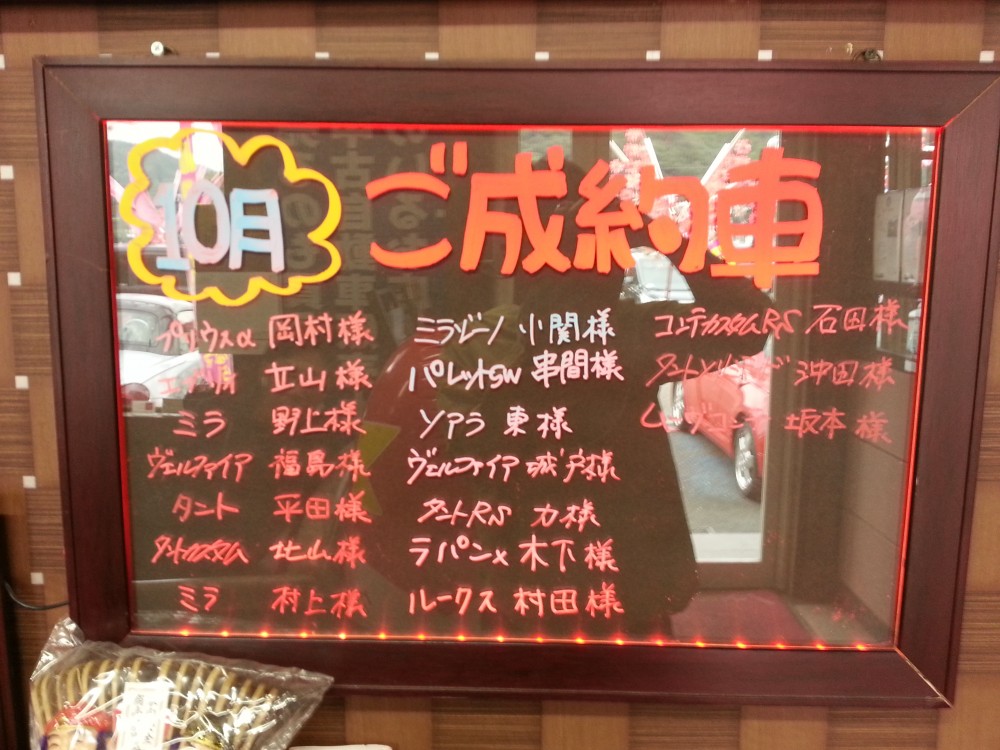 10月 ご成約車
プリウスα 岡村様
立山様
ミラ 野上様
ヴェルファイア 福島様
タント 平田様
タントカスタム 北山様
ミラ 村上様
ミラジーノ 小関様
パレットSW 串間様
ソアラ 東様
ヴェルファイア 城戸様
タントRS 力様
ラパンX 木下様
ルークス 村田様
コンテカスタムRS 石田様
沖田様
ムーヴコンテ 坂本様